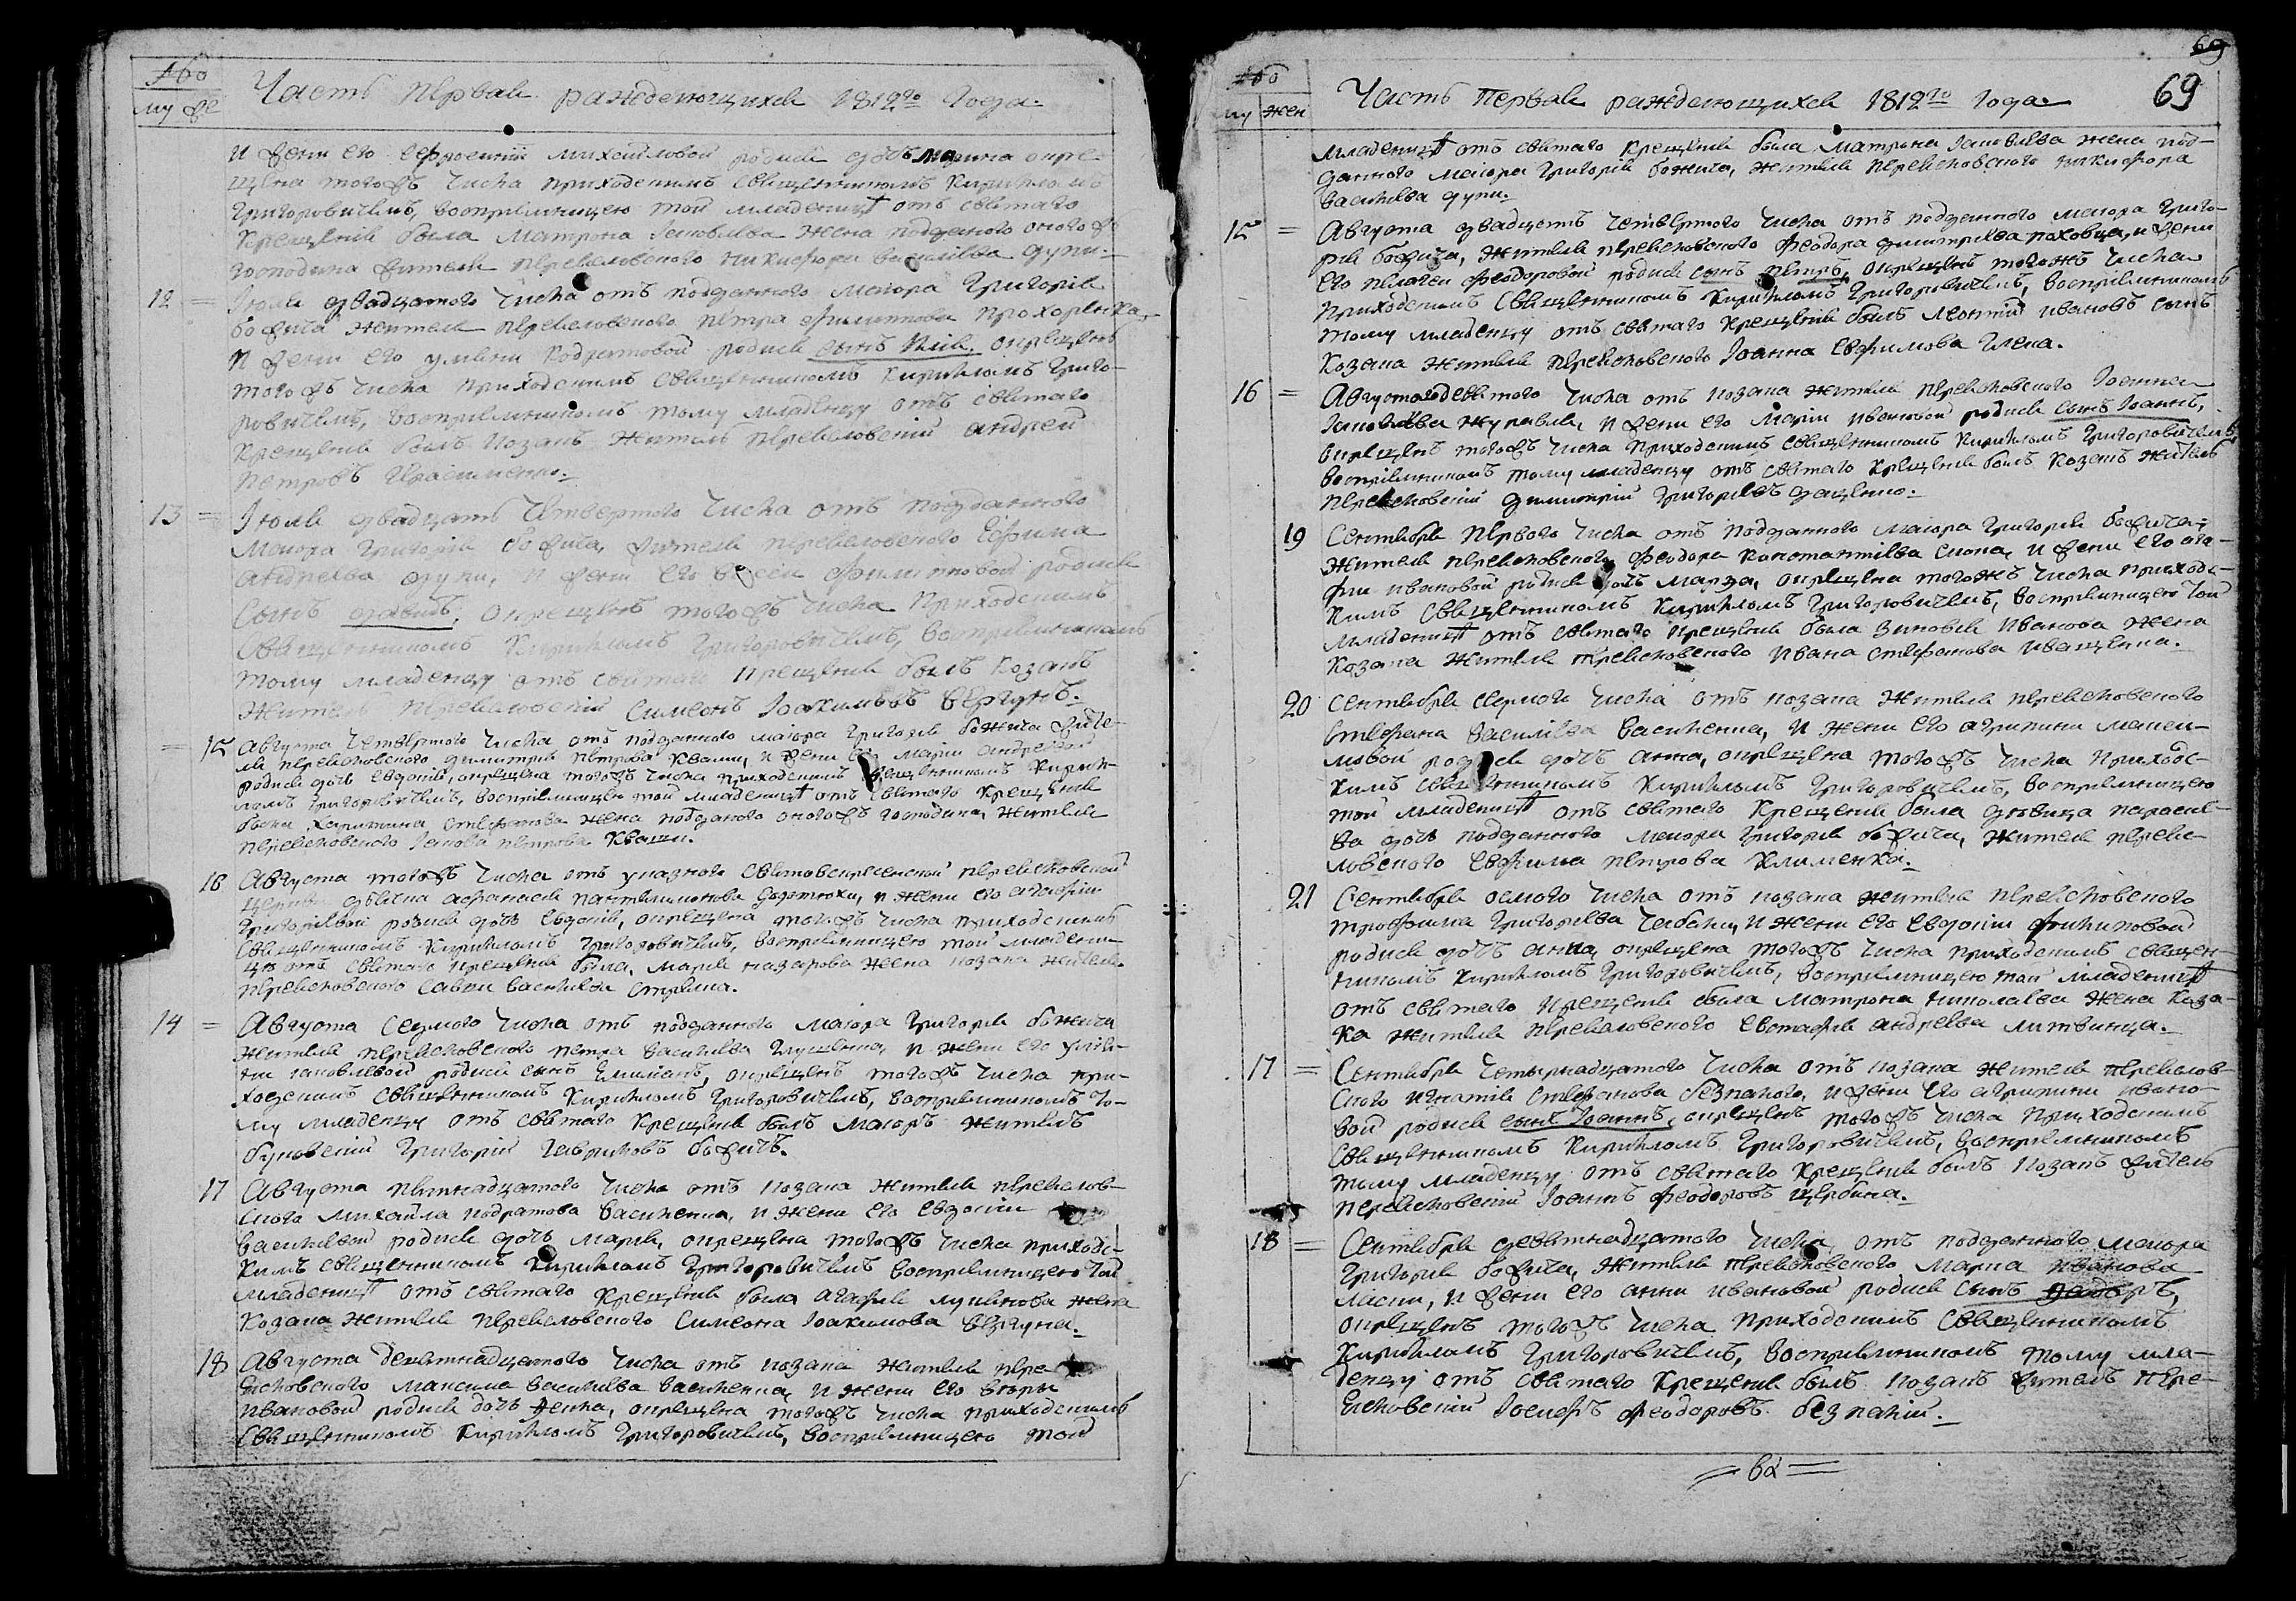 му же
Часть Первая раждающихся 1812го Года.
и жени его Ефросинии михайловой родися дочь марина окре-
щена тогожъ числа приходскимъ священникомъ Кирилломъ
Григоровичемъ, восприемницею той младеницѣ отъ святаго
Крещения была Матрона Iаковлева жена подданого оногожъ
господина жителя перевеловского никифора василева дупи.
12 = Iюля двадцатого числа отъ подданного маиора Григория
божича жителя перевеловского петра филиппова прохоренка,
и жени его улияни кодратовой родися сынъ Илия, окрещенъ
тогожъ числа приходскимъ священникомъ Кирилломъ Григо-
ровичемъ, восприемникомъ тому младенцу отъ святаго
крещения былъ козакъ житель перевеловский андрей
петровъ Герасименко.
13 = Iюля двадцать четвертого числа отъ подданного
маиора Григория божича, жителя перевеловского Ефима
андреева дупи, и жени его филипповой родися
сынъ давидъ, окрещенъ тогожъ числа приходскимъ
священникомъ Кирилломъ Григоровичемъ, восприемникомъ
тому младенцу отъ святаго крещения былъ козакъ
житель перевеловский Симеонъ Iоакимовъ Вергунъ.
= 15 Августа четвертого числа отъ подданного маиора Григория божича жите-
ля перевеловского димитрия петрова Кваши, и жени его марии андреевой
родися дочь евдокия, окрещена тогожъ числа приходскимъ священникомъ Кирил-
ломъ Григоровичемъ, восприемницею той младеницѣ отъ святаго крещения
была Харитина Стефанова жена подданого оногожъ господина, жителя
перевеловского Iакова петрова Кваши.
16 Августа тогожъ числа отъ указного святовоскресенской перевеловской
церкви дьячка афанасия пантелимонова, и жени его агафии
Григориевой родися дочь евдокия, окрещена тогожъ числа приходскимъ
священникомъ Кирилломъ Григоровичемъ, восприемницею той младени-
цѣ отъ святаго крещения была, Мария назарова жена козака жителя
перевеловского Савви василева
14 = Августа Седмого числа отъ подданного маиора Григория божича
жителя перевеловского петра василева Глущенка, и жени его улия-
ни iаковлевой родися сынъ Емилианъ, окрещенъ тогожъ числа при-
ходскимъ священникомъ Кирилломъ Григоровичемъ, восприемникомъ то-
му младенцу отъ святаго крещения былъ маиоръ житель
Григорий Гавриловъ божичъ.
17 Августа пятнадцатого числа отъ козака жителя перевелов-
ского Михайла кодратова василенка, и жени его евдокии
василевой родися дочь мария, окрещена тогожъ числа приходс-
кимъ священникомъ Кирилломъ Григоровичемъ восприемницею той
младеницѣ отъ святаго крещения была агафия лукянова жена
козака жителя перевеловского Симеона Iоакимова Вергуна.
18 Августа девятнадцатого числа отъ козака жителя пере-
веловского Максима василева василенка, и жени его вѣры
ивановой родися дочь окрещена тогожъ числа приходскимъ
священникомъ Кирилломъ Григоровичемъ, восприемницею той
69
му жен
Часть Первая раждающихся 1812го Года.
69
младеницѣ отъ святаго крещения была матрона Iаковлева жена под-
данного маиора Григория божича, жителя перевеловского никифора
василева дупи.
15 = Августа двадцать четвертого числа отъ подданного маиора Григо-
рия божича, жителя перевеловского феодора димитриева паховца, и жени
его пелагеи феодоровой родися сынъ петръ, окрещенъ тогожъ числа
приходскимъ священникомъ Кирилломъ Григоровичемъ, восприемникомъ
тому младенцу отъ святаго крещения былъ леонтий ивановъ сынъ
козака жителя перевеловского Iоанна евфимова
16 = Августа девятого числа отъ козака жителя перевеловского Iоанна
Iаковлева журавля, и жени его марии ивановой родися сынъ Iоаннъ,
окрещенъ тогожъ числа приходскимъ священникомъ Кирилломъ Григоровичемъ,
восприемникомъ тому младенцу отъ святаго крещения былъ козакъ житель
перевеловский димитрий Григориевъ даценко.
19 Сентября первого числа отъ подданного маиора Григория божича,
жителя перевеловского феодора константиева и жени его ага-
фии ивановой родися дочь марфа, окрещена тогожъ числа приходс-
кимъ священникомъ Кирилломъ Григоровичемъ, восприемницею той
младеницѣ отъ святаго крещения была зиновия иванова жена
козака жителя перевеловского ивана стефанова иващенка.
20 Сентября седмого числа отъ козака жителя перевеловского
Стефана василева василенка, и жени его агрипини макси-
мовой родися дочь анна, окрещена тогожъ числа приходс-
кимъ священникомъ Кирилломъ Григоровичемъ, восприемницею
той младеницѣ отъ святаго крещения была дѣвица параске-
ва дочь подданного маиора Григория божича, жителя переве-
ловского евфима петрова клименка.
21 Сентября осмого числа отъ козака жителя перевеловского
трофима Григориева чабана, и жени его евдокии филиповой
родися дочь анна, окрещена тогожъ числа приходскимъ священ-
никомъ Кирилломъ Григоровичемъ, восприемницею той младеницѣ
отъ святаго крещения была матрона николаева жена коза-
ка жителя перевеловского евстафия андреева литвинца.
17 = Сентября четырнадцатого числа отъ козака жителя перевелов-
ского игнатия Стефанова безпалого, и жени его агрипини ивано-
вой родися сынъ Iоаннъ, окрещенъ тогожъ числа приходскимъ
священникомъ Кирилломъ Григоровичемъ, восприемникомъ
тому младенцу отъ святаго крещения былъ козакъ житель
перевеловский Iоаннъ феодоровъ щербина.
18 = Сентября девятнадцатого числа отъ подданного маиора
Григория божича, жителя перевеловского марка иванова
и жени его анни ивановой родися сынъ феодоръ,
окрещенъ тогожъ числа приходскимъ священникомъ
Кирилломъ Григоровичемъ, восприемникомъ тому мла-
денцу отъ святаго крещения былъ козакъ житель пере-
веловский Iосифъ феодоровъ безпалий.